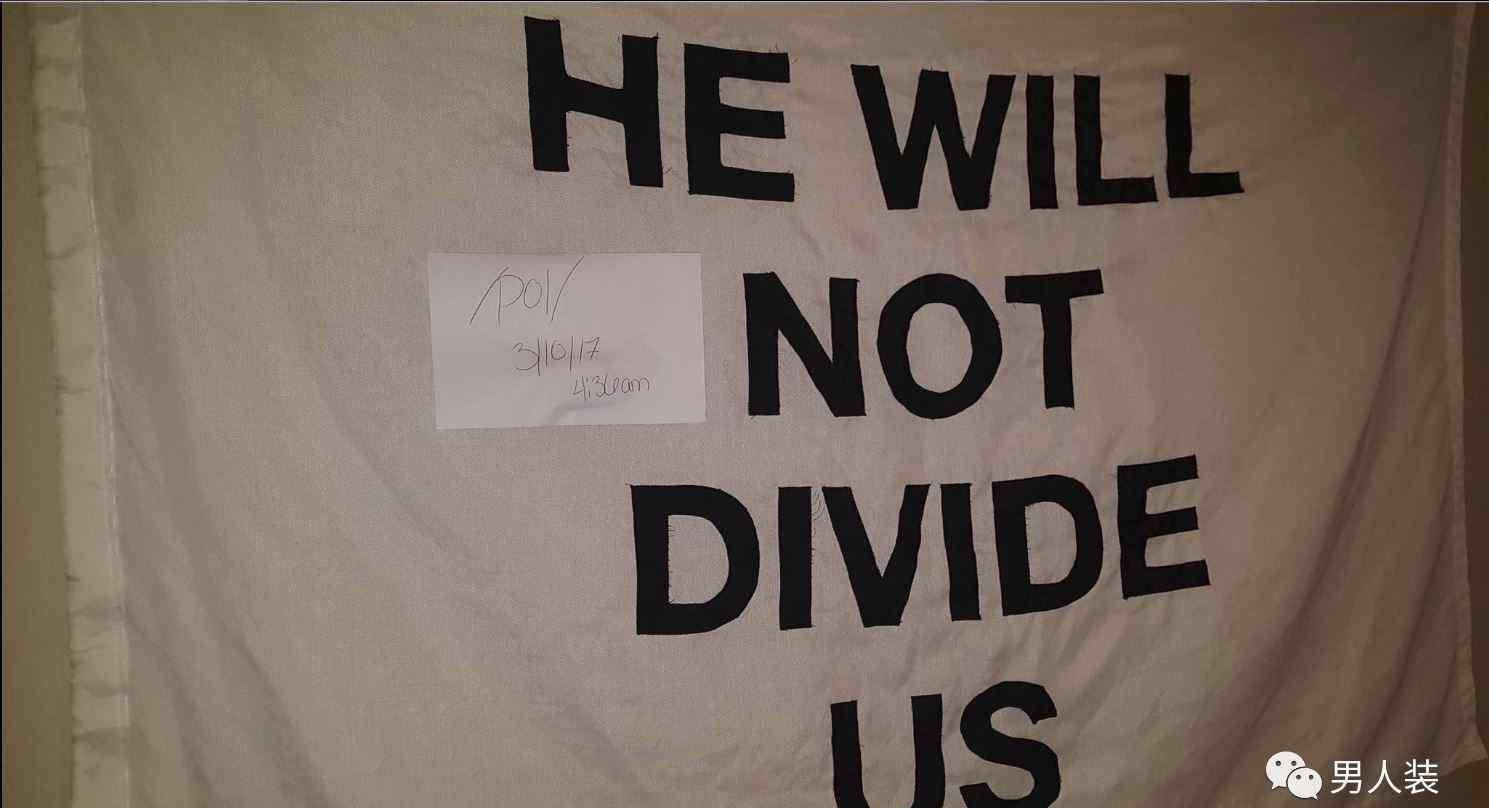 HE WILL
NOT
DIVIDE
US
/pol/
3/10/17
4:36am
男人装